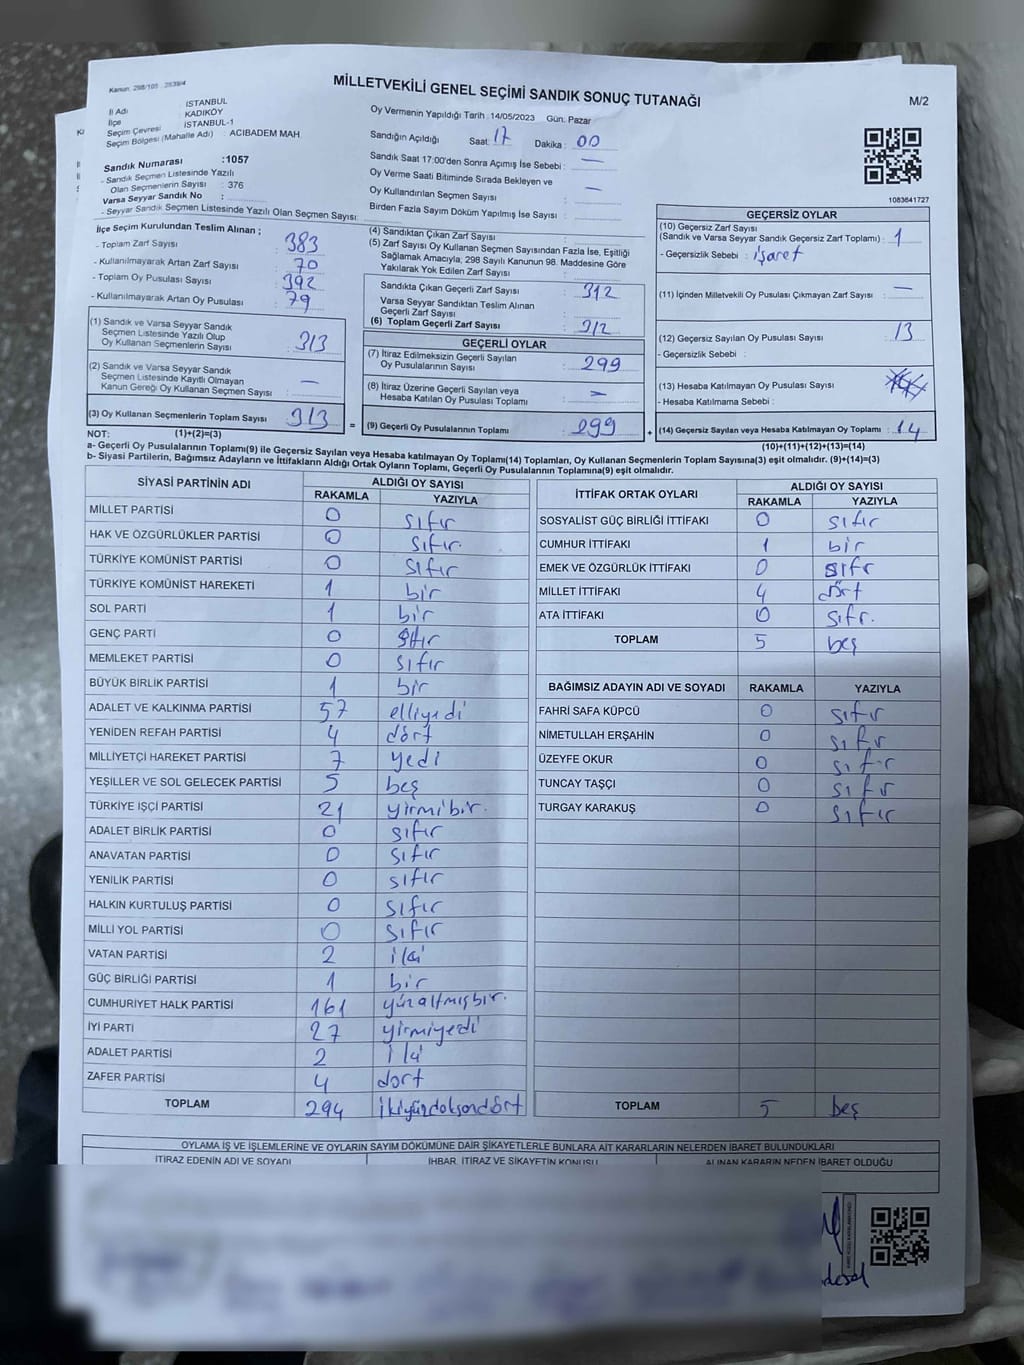 Kanun: 298/105
MİLLETVEKİLİ GENEL SEÇİMİ SANDIK SONUÇ TUTANAĞI
M/2
İl Adı İSTANBUL
İlçe KADIKÖY
Seçim Çevresi İSTANBUL-1
Seçim Bölgesi (Mahalle Adı) : ACIBADEM MAH.
Oy Vermenin Yapıldığı Tarih : 14/05/2023 Gün: Pazar
Sandığın Açıldığı Saat: 17 Dakika : 00
Sandık Saat 17:00'den Sonra Açımış İse Sebebi : —
Oy Verme Saati Bitiminde Sırada Bekleyen ve
Oy Kullandırılan Seçmen Sayısı : —
Birden Fazla Sayım Döküm Yapılmış İse Sayısı :
Sandık Numarası :1057
- Sandık Seçmen Listesinde Yazılı
Olan Seçmenlerin Sayısı : 376
Varsa Seyyar Sandık No :
- Seyyar Sandık Seçmen Listesinde Yazılı Olan Seçmen Sayısı:
1083641727
İlçe Seçim Kurulundan Teslim Alınan ;
- Toplam Zarf Sayısı : 383
- Kullanılmayarak Artan Zarf Sayısı : 70
- Toplam Oy Pusulası Sayısı : 392
- Kullanılmayarak Artan Oy Pusulası : 79
(1) Sandık ve Varsa Seyyar Sandık
Seçmen Listesinde Yazılı Olup
Oy Kullanan Seçmenlerin Sayısı : 313
(2) Sandık ve Varsa Seyyar Sandık
Seçmen Listesinde Kayıtlı Olmayan
Kanun Gereği Oy Kullanan Seçmen Sayısı : —
(3) Oy Kullanan Seçmenlerin Toplam Sayısı : 313 =
(1)+(2)=(3)
(4) Sandıktan Çıkan Zarf Sayısı :
(5) Zarf Sayısı Oy Kullanan Seçmen Sayısından Fazla İse, Eşitliği
Sağlamak Amacıyla, 298 Sayılı Kanunun 98. Maddesine Göre
Yakılarak Yok Edilen Zarf Sayısı :
Sandıkta Çıkan Geçerli Zarf Sayısı : 312
Varsa Seyyar Sandıktan Teslim Alınan
Geçerli Zarf Sayısı :
(6) Toplam Geçerli Zarf Sayısı : 312
GEÇERLİ OYLAR
(7) İtiraz Edilmeksizin Geçerli Sayılan
Oy Pusulalarının Sayısı : 299
(8) İtiraz Üzerine Geçerli Sayılan veya
Hesaba Katılan Oy Pusulası Toplamı : —
(9) Geçerli Oy Pusulalarının Toplamı : 299 +
GEÇERSİZ OYLAR
(10) Geçersiz Zarf Sayısı
(Sandık ve Varsa Seyyar Sandık Geçersiz Zarf Toplamı) : 1
- Geçersizlik Sebebi : işaret
(11) İçinden Milletvekili Oy Pusulası Çıkmayan Zarf Sayısı : —
(12) Geçersiz Sayılan Oy Pusulası Sayısı : 13
- Geçersizlik Sebebi :
(13) Hesaba Katılmayan Oy Pusulası Sayısı
- Hesaba Katılmama Sebebi :
(14) Geçersiz Sayılan veya Hesaba Katılmayan Oy Toplamı : 14
(10)+(11)+(12)+(13)=(14)
NOT:
a- Geçerli Oy Pusulalarının Toplamı(9) ile Geçersiz Sayılan veya Hesaba katılmayan Oy Toplamı(14) Toplamları, Oy Kullanan Seçmenlerin Toplam Sayısına(3) eşit olmalıdır. (9)+(14)=(3)
b- Siyasi Partilerin, Bağımsız Adayların ve İttifakların Aldığı Ortak Oyların Toplamı, Geçerli Oy Pusulalarının Toplamına(9) eşit olmalıdır.
SİYASİ PARTİNİN ADI ALDIĞI OY SAYISI
RAKAMLA YAZIYLA
MİLLET PARTİSİ 0 sıfır
HAK VE ÖZGÜRLÜKLER PARTİSİ 0 sıfır.
TÜRKİYE KOMÜNİST PARTİSİ 0 sıfır
TÜRKİYE KOMÜNİST HAREKETİ 1 bir
SOL PARTİ 1 bir
GENÇ PARTİ 0 sıfır
MEMLEKET PARTİSİ 0 sıfır
BÜYÜK BİRLİK PARTİSİ 1 bir
ADALET VE KALKINMA PARTİSİ 57 elliyedi
YENİDEN REFAH PARTİSİ 4 dört
MİLLİYETÇİ HAREKET PARTİSİ 7 yedi
YEŞİLLER VE SOL GELECEK PARTİSİ 5 beş
TÜRKİYE İŞÇİ PARTİSİ 21 yirmibir.
ADALET BİRLİK PARTİSİ 0 sıfır
ANAVATAN PARTİSİ 0 sıfır
YENİLİK PARTİSİ 0 sıfır
HALKIN KURTULUŞ PARTİSİ 0 sıfır
MİLLİ YOL PARTİSİ 0 sıfır
VATAN PARTİSİ 2 iki
GÜÇ BİRLİĞİ PARTİSİ 1 bir
CUMHURİYET HALK PARTİSİ 161 yüzaltmışbir.
İYİ PARTİ 27 yirmiyedi
ADALET PARTİSİ 2 iki
ZAFER PARTİSİ 4 dort
TOPLAM 294 ikiyüzdoksandört
İTTİFAK ORTAK OYLARI ALDIĞI OY SAYISI
RAKAMLA YAZIYLA
SOSYALİST GÜÇ BİRLİĞİ İTTİFAKI 0 sıfır
CUMHUR İTTİFAKI 1 bir
EMEK VE ÖZGÜRLÜK İTTİFAKI 0 sıfr
MİLLET İTTİFAKI 4 dört
ATA İTTİFAKI 0 sıfr.
TOPLAM 5 beş
BAĞIMSIZ ADAYIN ADI VE SOYADI RAKAMLA YAZIYLA
FAHRİ SAFA KÜPCÜ 0 sıfır
NİMETULLAH ERŞAHİN 0 sıfır
ÜZEYFE OKUR 0 sıfır
TUNCAY TAŞÇI 0 sıfır
TURGAY KARAKUŞ 0 sıfır
TOPLAM 5 beş
OYLAMA İŞ VE İŞLEMLERİNE VE OYLARIN SAYIM DÖKÜMÜNE DAİR ŞİKAYETLERLE BUNLARA AİT KARARLARIN NELERDEN İBARET BULUNDUKLARI
İTİRAZ EDENİN ADI VE SOYADI İHBAR, İTİRAZ VE ŞİKAYETİN KONUSU ALINAN KARARIN NEDEN İBARET OLDUĞU